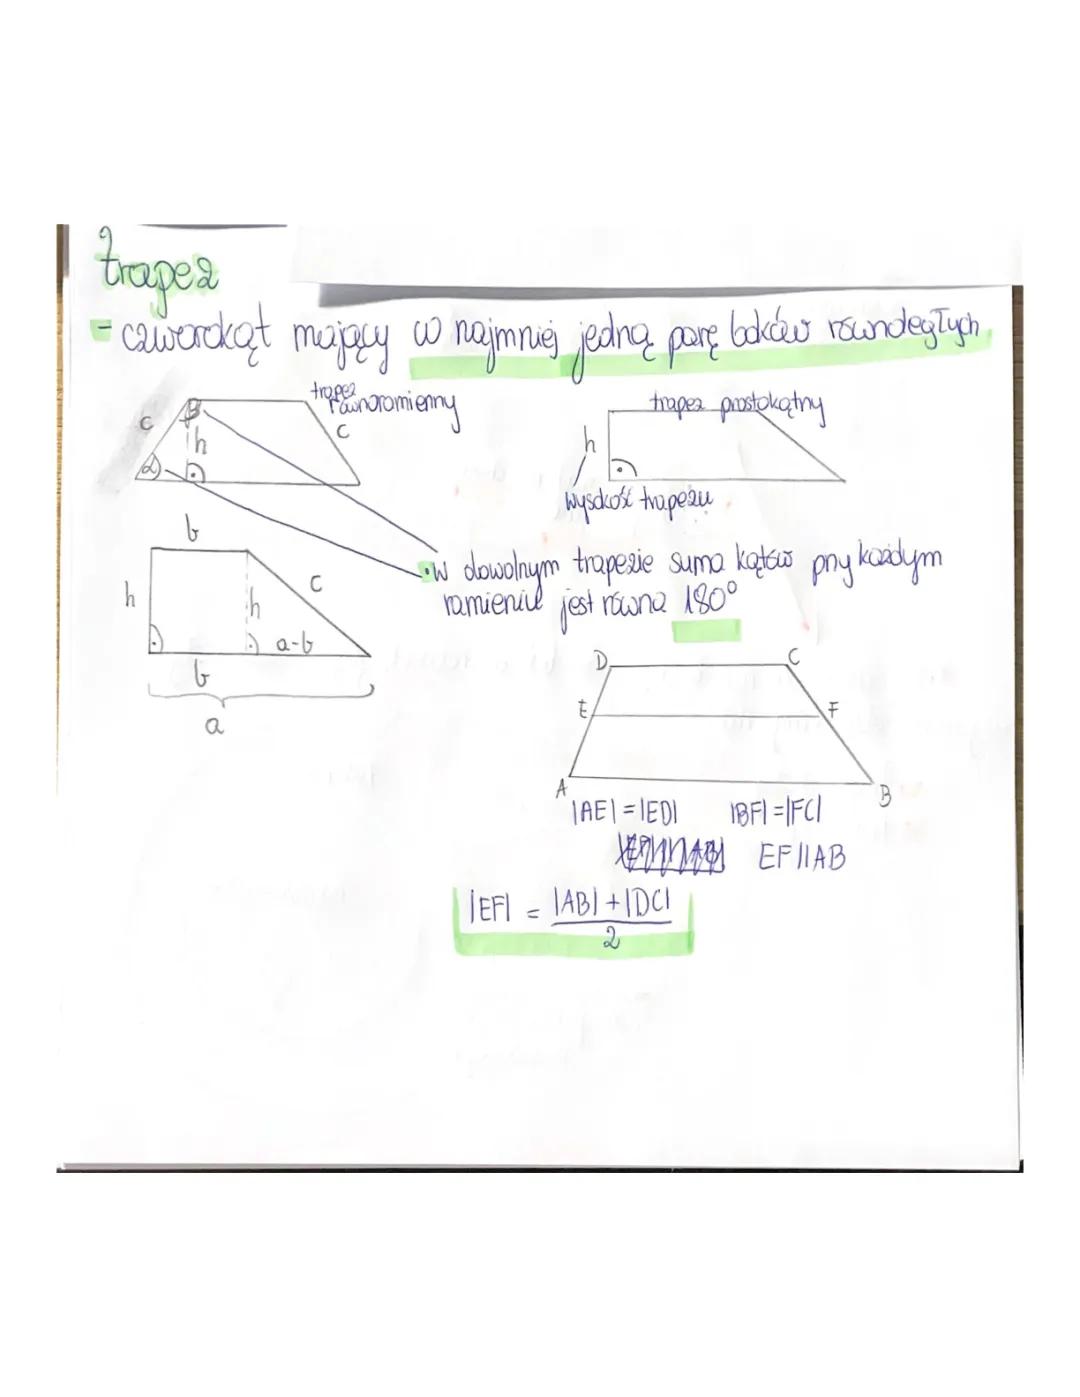 trapez
- czworokąt mający co najmniej jedną parę boków równoległych
trapez
równoramienny
c
B
h
α
c
trapez prostokątny
h
wysokość trapezu
b
h
h
c
a-b
b
a
• W dowolnym trapezie suma kątów przy każdym
ramieniu jest równa 180°
D
C
E
F
A
B
|AE| = |ED| |BF| = |FC|
EF || AB
|EF| = |AB| + |DC|
2